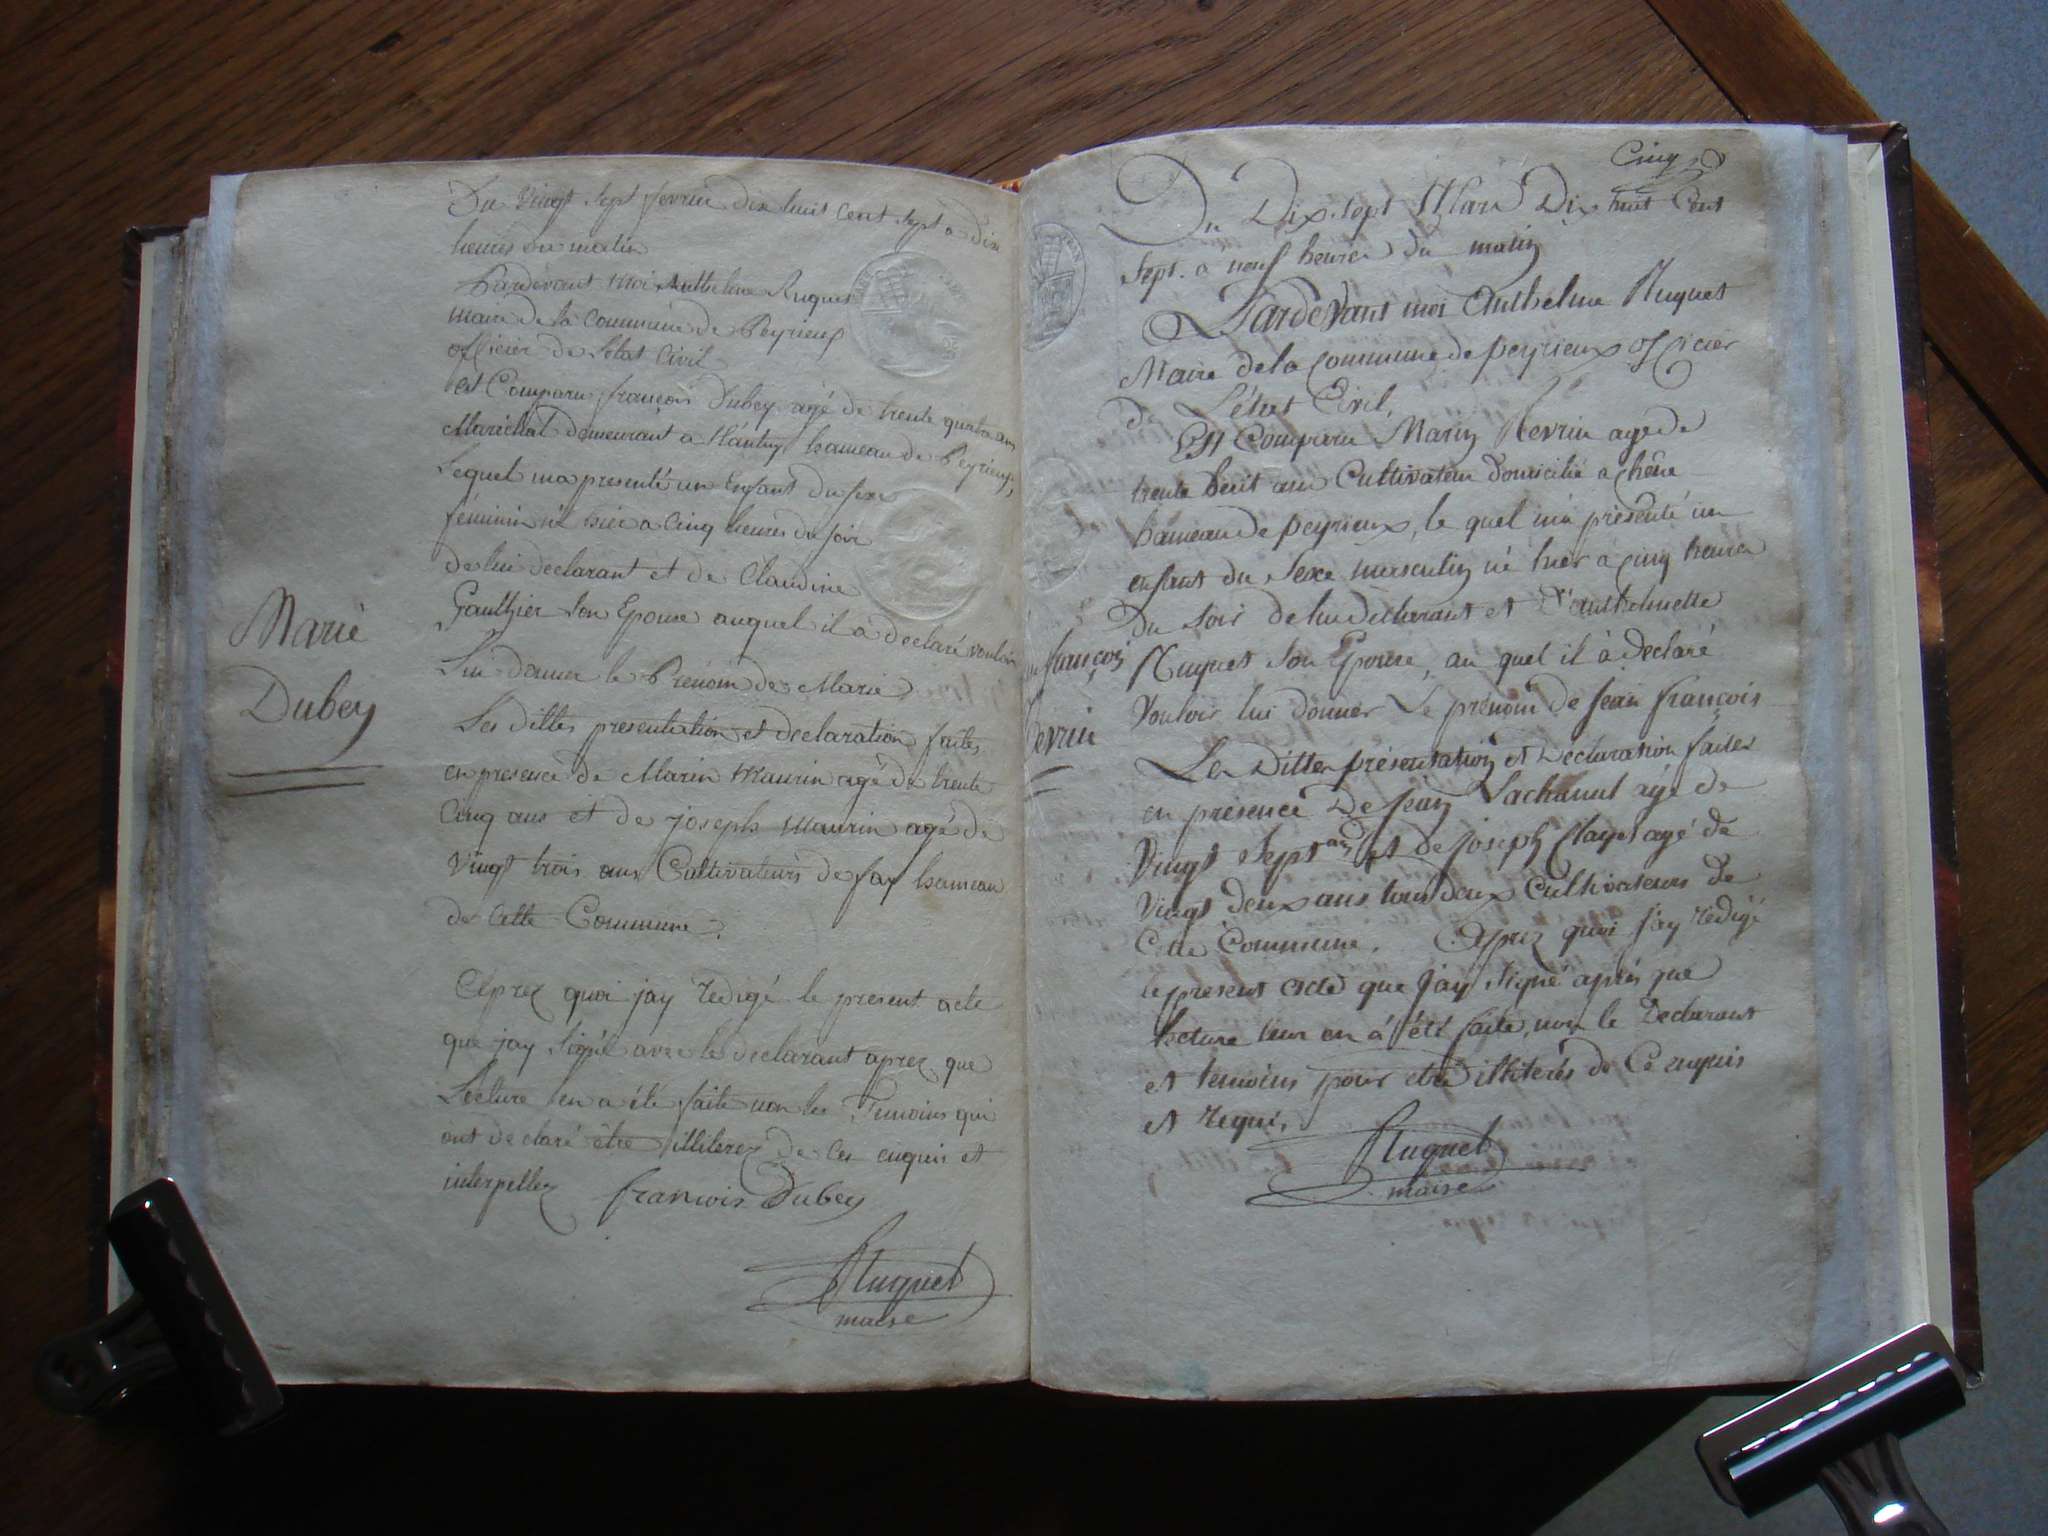 Du Vingt Sept fevrier dix huit cent sept a dix
heures du matin
Pardevant moi Anthelme Huguet
Maire de la Commune de Peyrieux
officier de l'etat Civil
est Comparu françois Dubey agé de trente quatre ans
Maréchal demeurant a hameau de Peyrieux,
Lequel ma presenté un Enfant du sexe
féminin né hier a Cinq heures du soir
de lui declarant et de Claudine
Gaulthier son Epouse auquel il a declaré vouloir
lui donner le Prénom de Marie
Les dittes presentation et declaration faites
en presence de Marin Maurin agé de trente
Cinq ans et de joseph Maurin agé de
Vingt trois ans Cultivateurs de fay hameau
de Cette Commune.
Marie
Dubey
Aprez quoi jay redigé le present acte
que jay signé avec le declarant aprez que
Lecture en a été faite non les Temoins qui
ont declaré être illiterez de ces enquis et
interpellez françois Dubey
Huguet
maire
Cinq
Du Dix sept Mars Dix huit Cent
Sept. a neuf heures du matin
Pardevant moi Anthelme Huguet
Maire de la Commune de peyrieux officier
de L'état Civil,
Est Comparu Marin age de
trente huit ans Cultivateur domicilié a chêne
hameau de peyrieux, le quel m'a présenté un
enfant du Sexe masculin né hier à cinq heures
Du Soir de lui declarant et D'anthelmette
Huguet Son Epouse, au quel il à declaré
Vouloir lui donner Le prénom de Jean françois
Les Dittes présentation et Déclaration faites
en présence De Jean Lachanal agé de
Vingt Sept ans et de joseph Clayet agé de
Vingt deux ans tous deux Cultivateurs de
Cette Commune. Aprez quoi jay redigé
le present acte que jay signé après que
lecture leur en à été faite, non le Declarant
et temoins pour etre illiterés de Ce enquis
et requis
Huguet
maire
françois
evrin